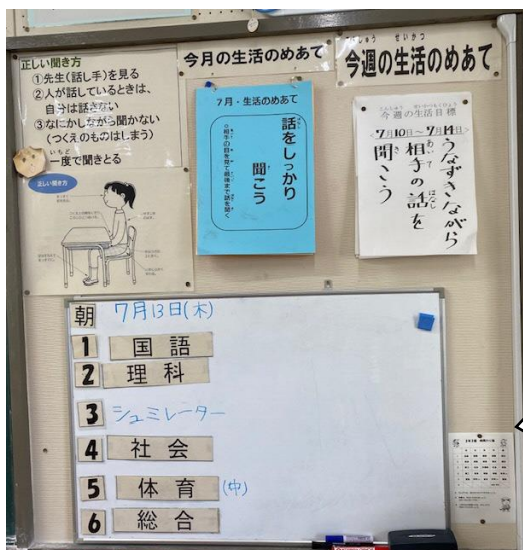 正しい聞き方
①先生(話し手)を見る
②人が話しているときは、
自分は話さない
③なにかしながら聞かない
(つくえのものはしまう)
一度で聞きとる
正しい聞き方
今月の生活のめあて
7月・生活のめあて
話をしっかり
聞こう
○相手の目を見て最後まで話を聞く
今週の生活のめあて
今週の生活目標
7月10日~7月14日
うなずきながら
相手の話を
聞こう
朝 7月13日(木)
1 国語
2 理科
3 シュミレーター
4 社会
5 体育(中)
6 総合